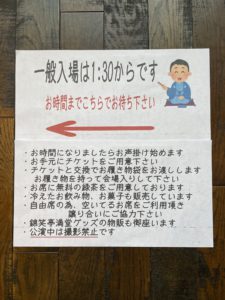 一般入場は1:30からです
お時間までこちらでお待ち下さい
・お時間になりましたらお声掛け始めます
・お手元にチケットをご用意下さい
・チケットと交換でお履き物袋をお渡しします
お履き物を持って会場入りして下さい
・お席に無料の緑茶をご用意しております
・冷えたお飲み物、お菓子も販売しています
・自由席の為、空いてるお席をご利用頂き
譲り合いにご協力下さい
・錦笑亭満堂グッズの物販も御座います
・公演中は撮影禁止です